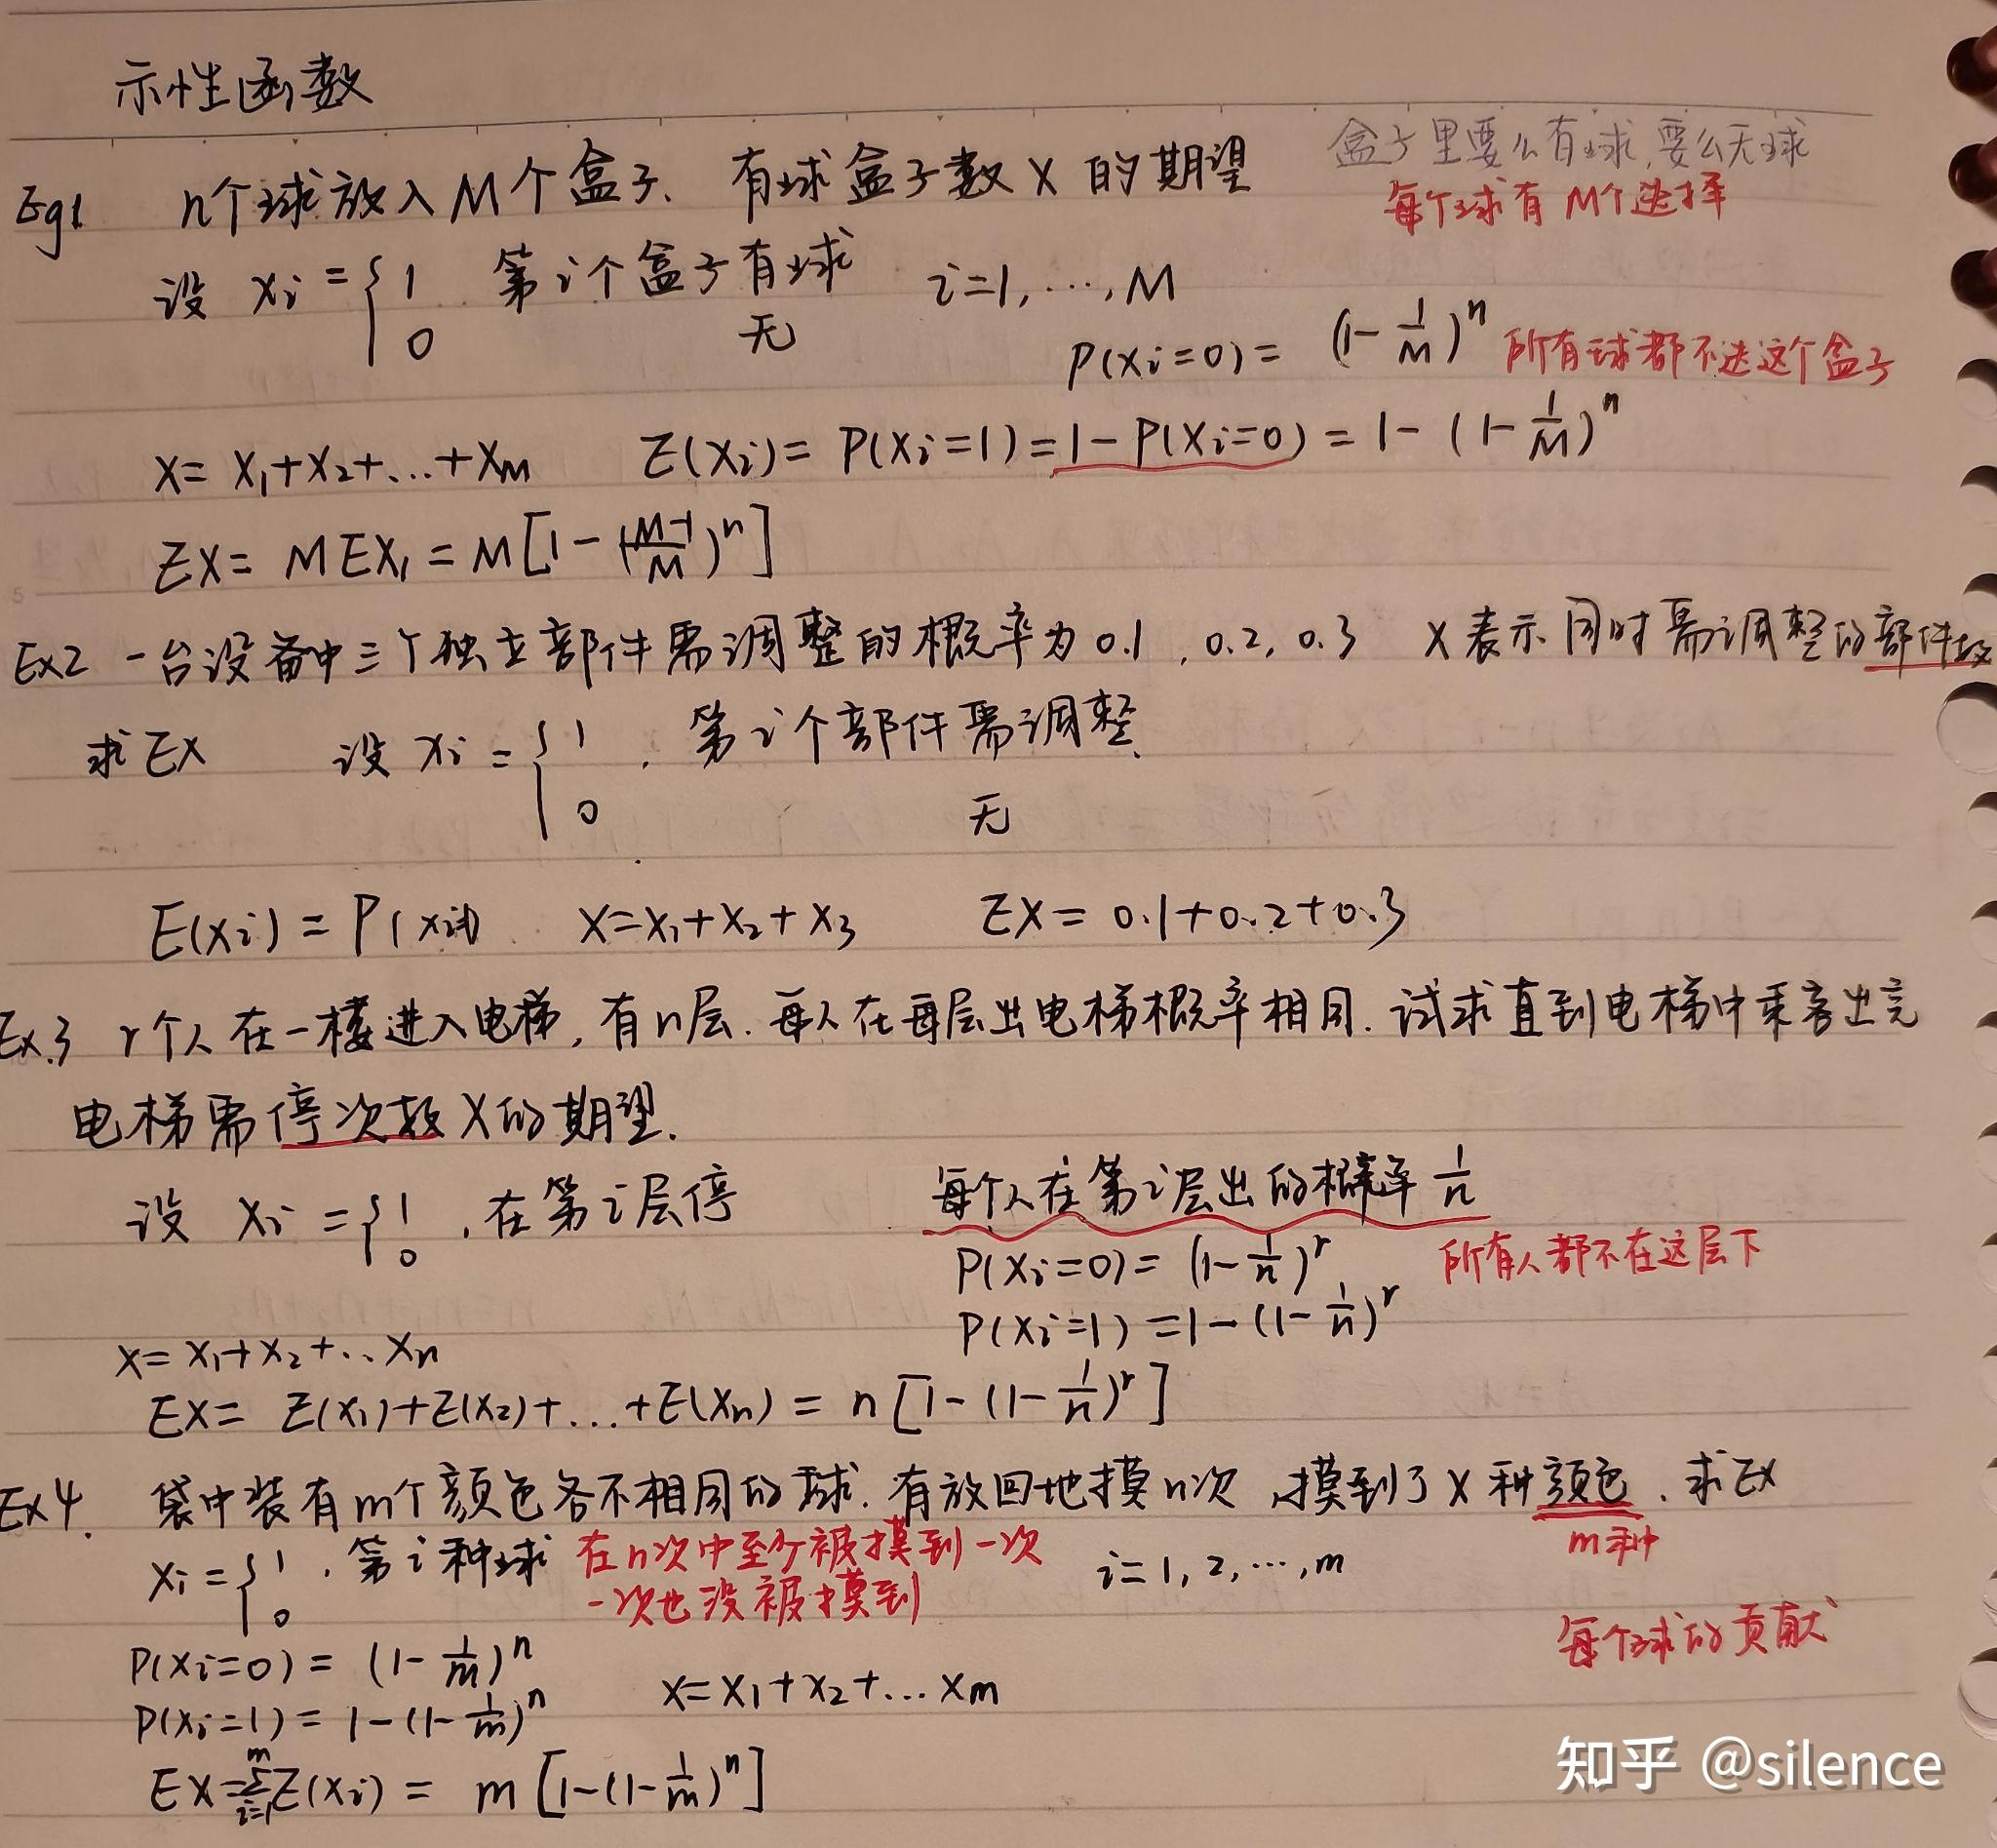 示性函数
盒子里要么有球,要么无球
Eg1 n个球放入M个盒子. 有球盒子数X的期望
每个球有M个选择
设 Xi = { 1 第i个盒子有球 i=1,…,M
0 无
P(Xi=0) = (1-1/M)^n 所有球都不选这个盒子
X= X1+X2+…+Xm E(Xi)= P(Xi=1)=1-P(Xi=0)= 1-(1-1/M)^n
EX= MEX1 = M[1-(M-1/M)^n]
Ex2 一台设备中三个独立部件需调整的概率为0.1, 0.2, 0.3 X表示同时需调整的部件数
求EX 设 Xi = { 1 , 第i个部件需调整.
0 无
E(Xi) = P(Xi=1) X=X1+X2+X3 EX= 0.1+0.2+0.3
Ex.3 r个人在一楼进入电梯, 有n层. 每人在每层出电梯概率相同. 试求直到电梯中乘客出完
电梯需停次数X的期望.
设 Xi = { 1 , 在第i层停 每个人在第i层出的概率 1/n
0
P(Xi=0)= (1-1/n)^r 所有人都不在这层下
P(Xi=1) =1-(1-1/n)^r
X= X1+X2+…Xn
EX= E(X1)+E(X2)+…+E(Xn) = n[1-(1-1/n)^r]
Ex4. 袋中装有m个颜色各不相同的球. 有放回地摸n次,摸到了X种颜色. 求EX
m种
Xi = { 1 , 第i种球 在n次中至少被摸到一次 i=1,2,…,m
0 一次也没被摸到
每个球的贡献
P(Xi=0)= (1-1/m)^n
X=X1+X2+…Xm
P(Xi=1)= 1-(1-1/m)^n
EX=∑_{i=1}^{m}E(Xi) = m[1-(1-1/m)^n]
知乎 @silence